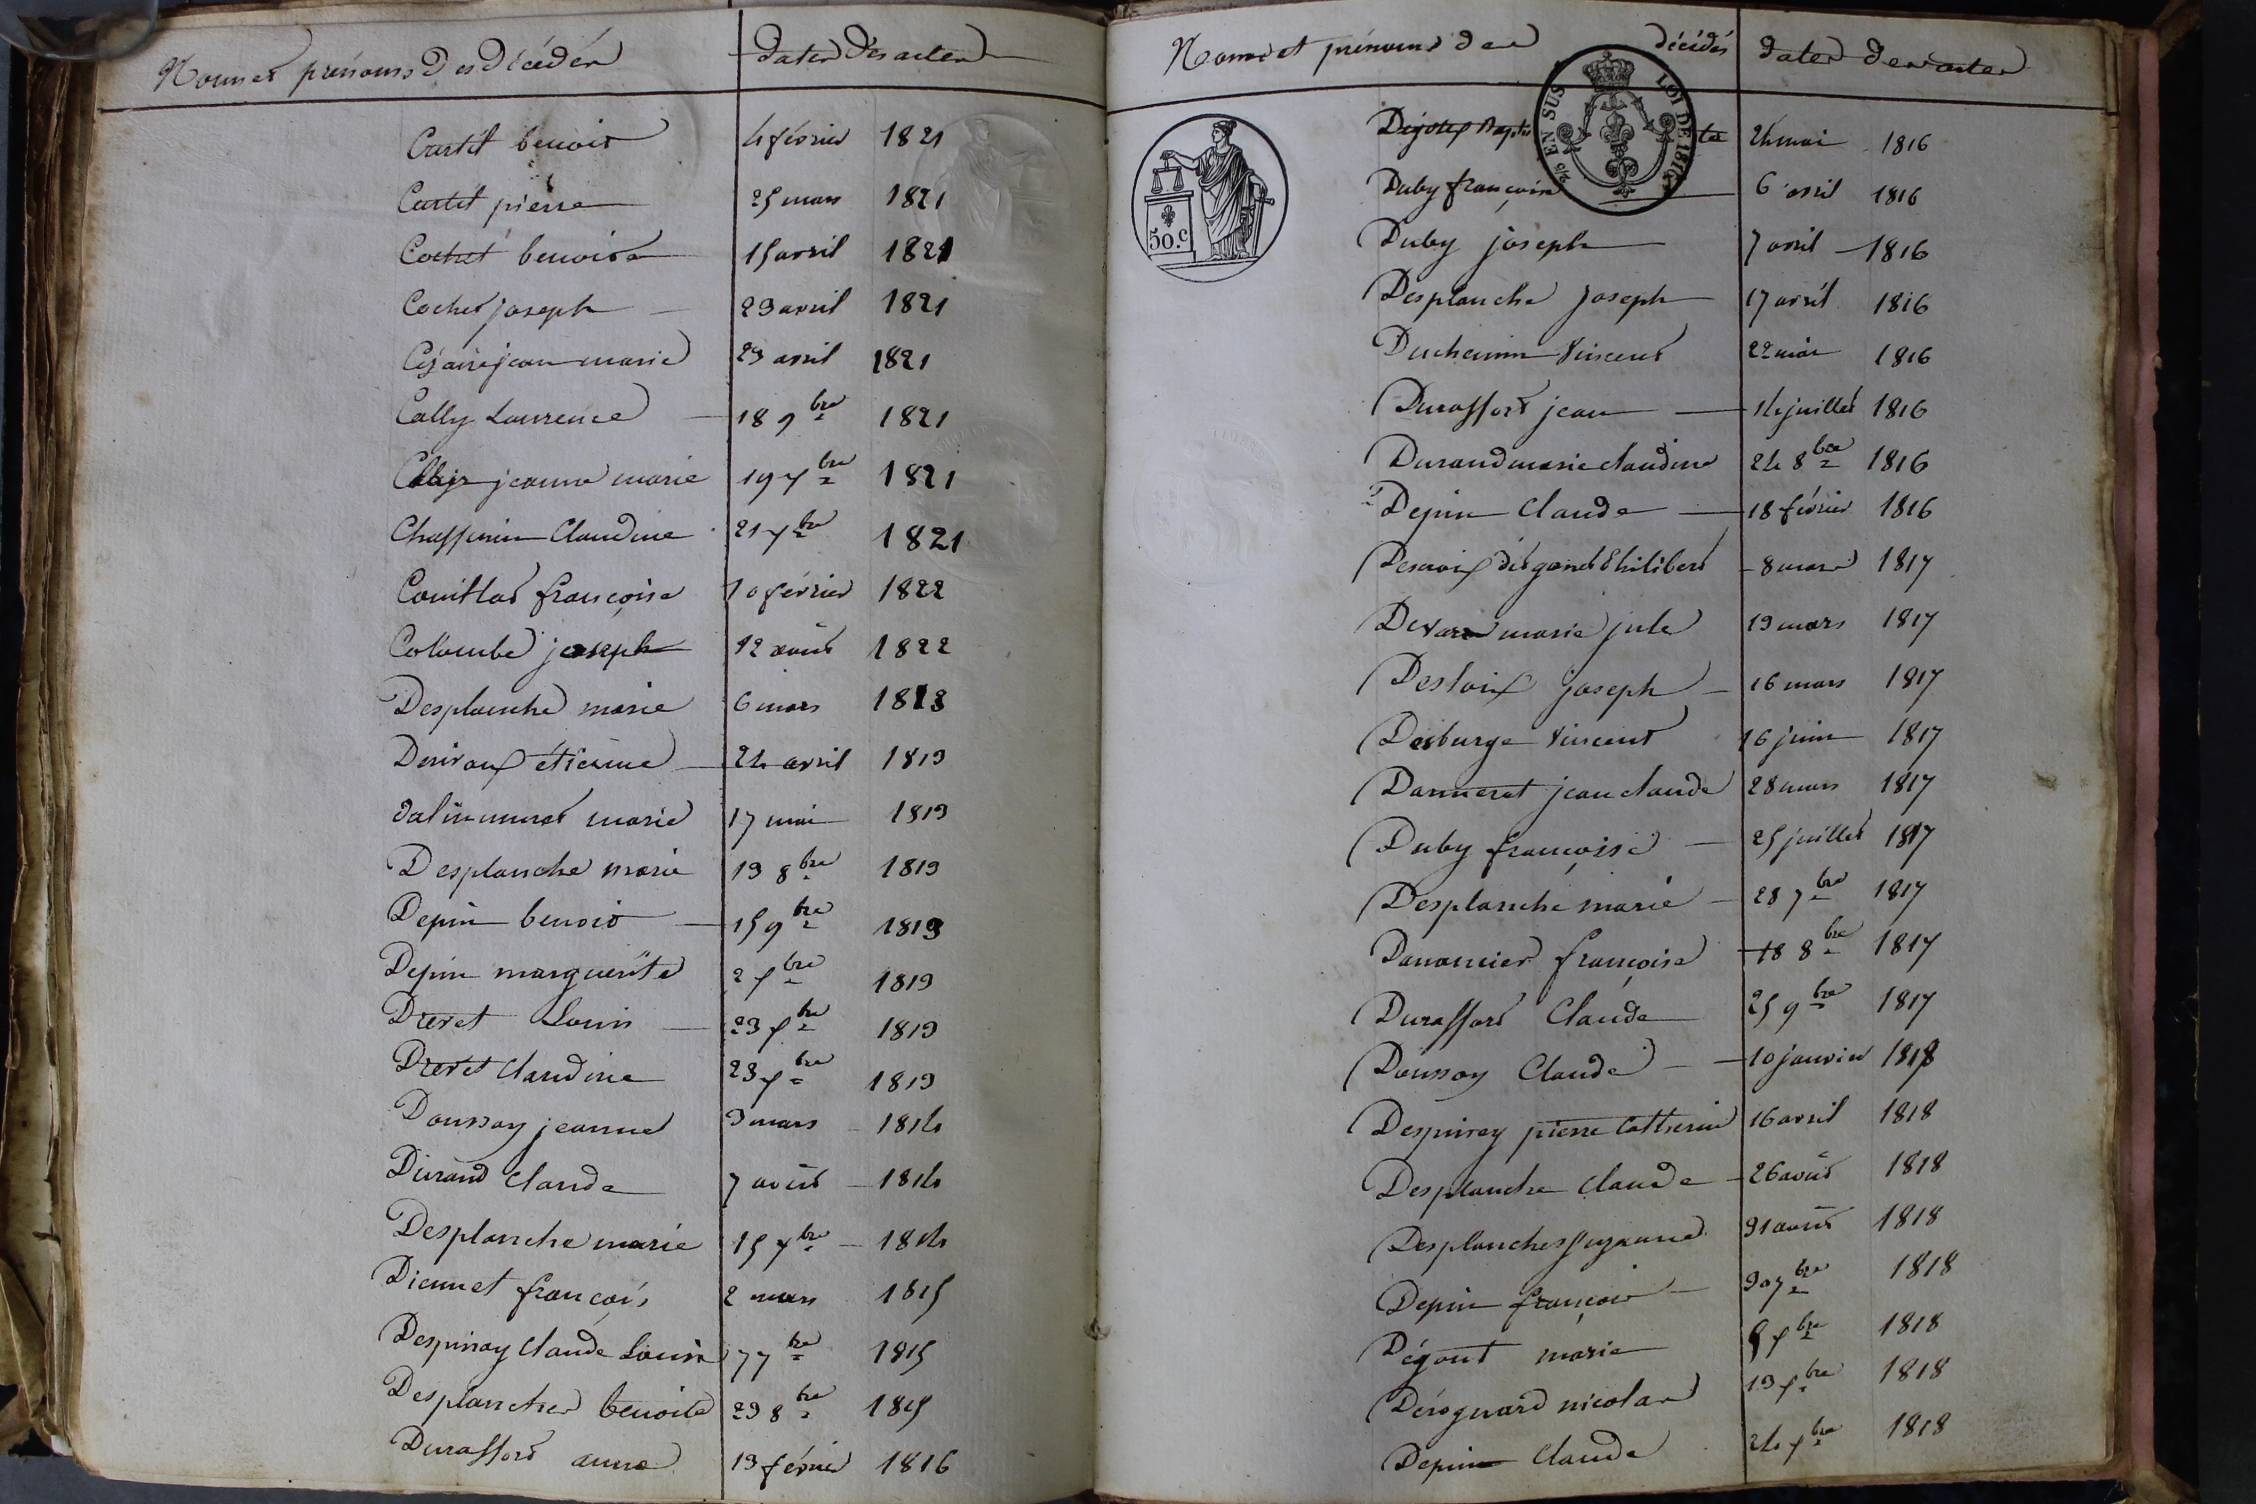 Noms et prénoms des décédés dates des actes
Curtil benoit 4 février 1821
Curtil pierre 25 mars 1821
Cochet benoite 15 avril 1821
Cochet joseph 29 avril 1821
Césaire jean marie 29 avril 1821
Cally Laurence 18 9bre 1821
jeanne marie 19 Xbre 1821
Chaffurin Claudine 21 Xbre 1821
Couillat françoise 10 février 1822
Colombe joseph 12 août 1822
Desplanche marie 6 mars 1813
étienne 24 avril 1813
marie 17 mai 1813
Desplanche marie 13 8bre 1813
Depin benoit 15 9bre 1813
Depin marguerite 2 Xbre 1813
Drevet Louis 23 Xbre 1813
Drevet Claudine 23 Xbre 1813
Doussoy jeanne 3 mars 1814
Durand Claude 7 août 1814
Desplanche marie 15 Xbre 1814
Diennet françois 2 mars 1815
Despinay Claude Louis 7 7bre 1815
Desplanches benoite 23 8bre 1815
Duraffort anne 13 février 1816
Noms et prénoms des décédés dates des actes
EN SUS LOI DE 1816
50.c
24 mai 1816
Duby françoise 6 avril 1816
Duby joseph 7 avril 1816
Desplanche joseph 17 avril 1816
Duchemin Vincent 22 mai 1816
Duraffort jean 14 juillet 1816
Durand marie claudine 24 8bre 1816
Depin Claude 18 février 1816
Philibert 8 mars 1817
Devare marie jule 19 mars 1817
Desloix joseph 16 mars 1817
Desburge Vincent 16 juin 1817
Danneret jean claude 28 mars 1817
Duby françoise 25 juillet 1817
Desplanche marie 28 7bre 1817
Danancier françoise 18 8bre 1817
Duraffort Claude 25 9bre 1817
Doussoy Claude 10 janvier 1818
Despinay pierre Catherin 16 avril 1818
Desplanche Claude 26 août 1818
Desplanches Suzanne 31 août 1818
Depin françois 30 7bre 1818
Dégout marie 5 Xbre 1818
nicolas 13 Xbre 1818
Depin Claude 24 Xbre 1818